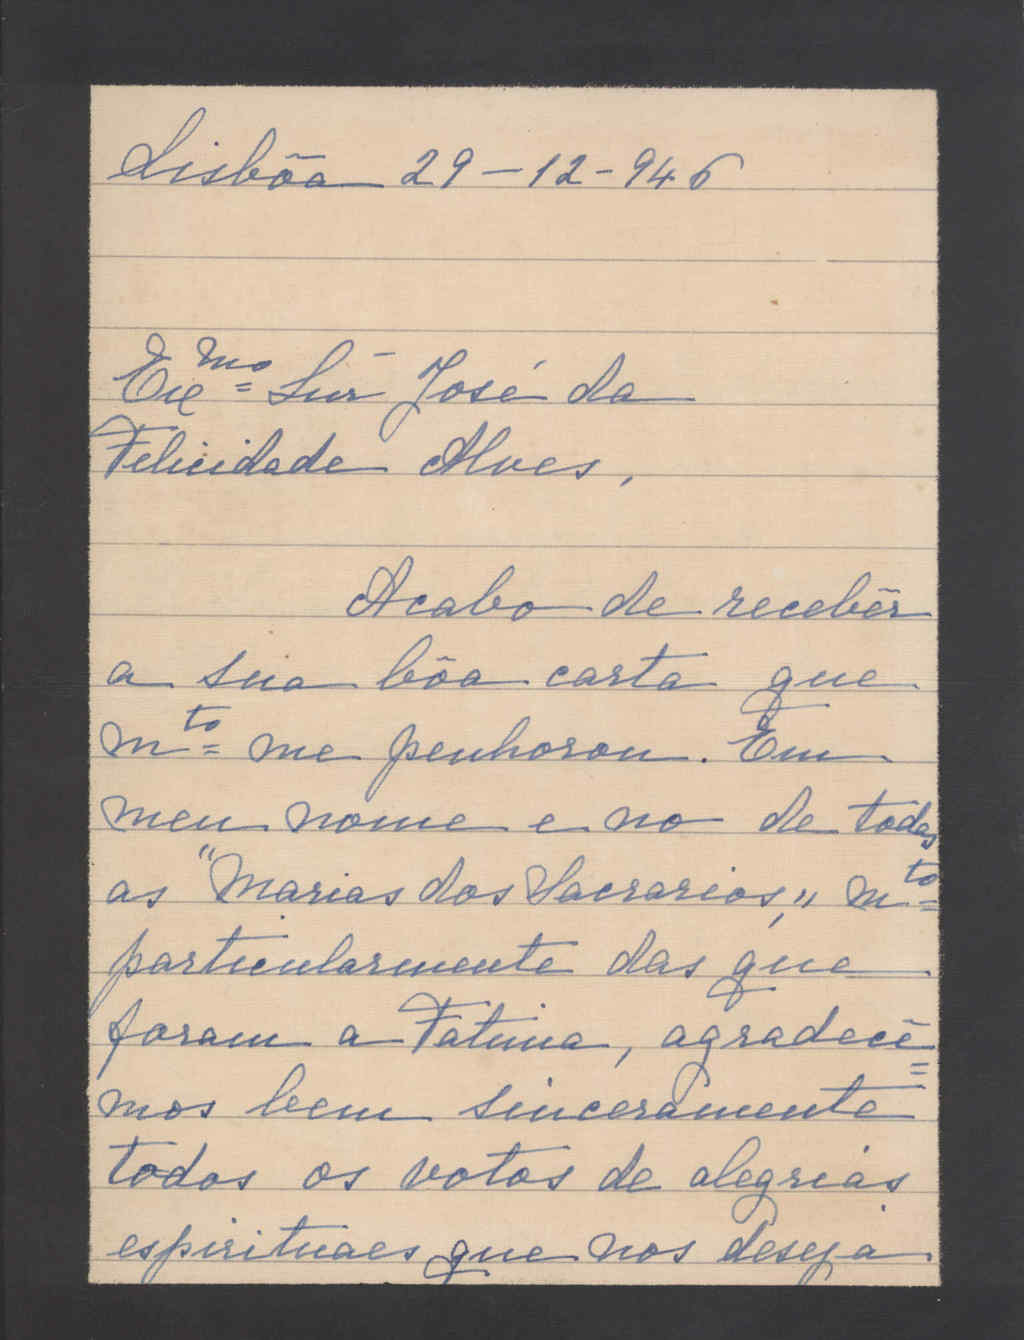 Lisbôa 29-12-946
Exmo= Snr José da
Felicidade Alves,
Acabo de recebêr
a sua bôa carta que
mto= me penhorou. Em
meu nome e no de todas
as "Marias dos Sacrarios," mto=
particularmente das que
foram a Fatima, agradecê=
mos bem sinceramente
todos os votos de alegrias
espirituaes que nos deseja